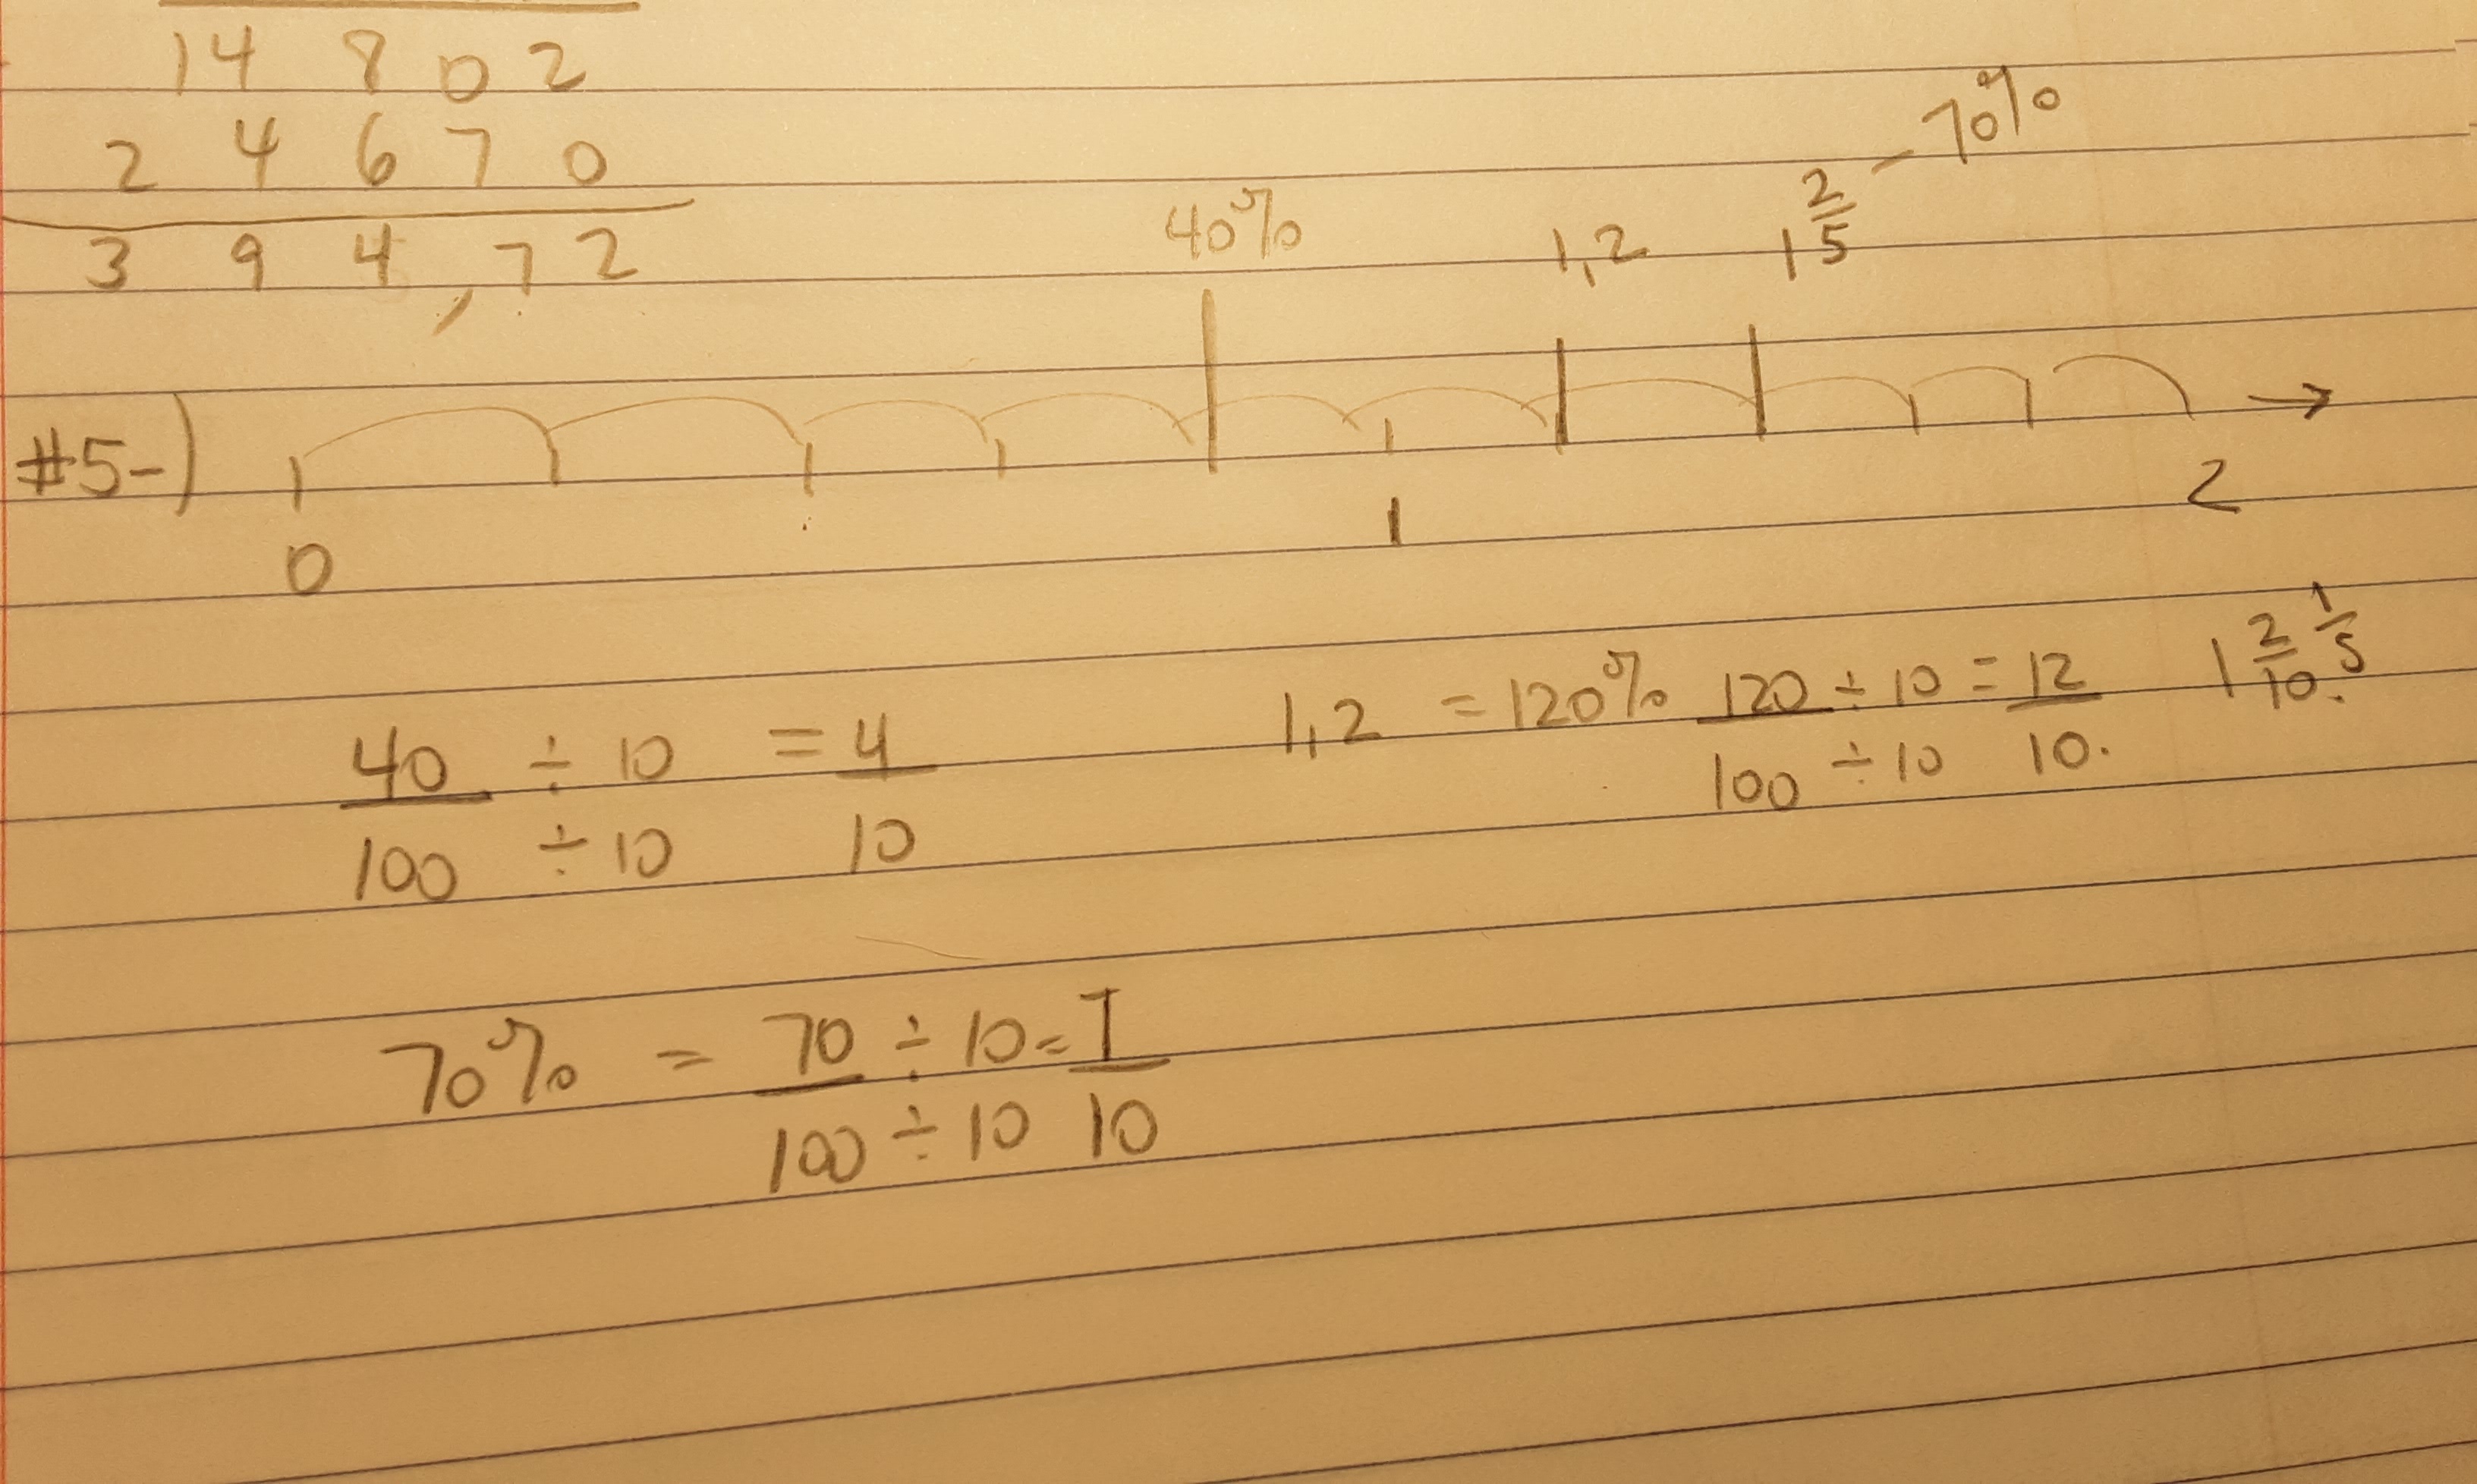 14 8 0 2
2 4 6 7 0
3 9 4 , 7 2
40% 1,2 1 2/5 - 70%
#5-)
0 1 2
40/100 ÷ 10/÷ 10 = 4/10
1,2 = 120% 120/100 ÷ 10/÷ 10 = 12/10. 1 2/10. 1/5
70% = 70/100 ÷ 10/÷ 10 = 7/10